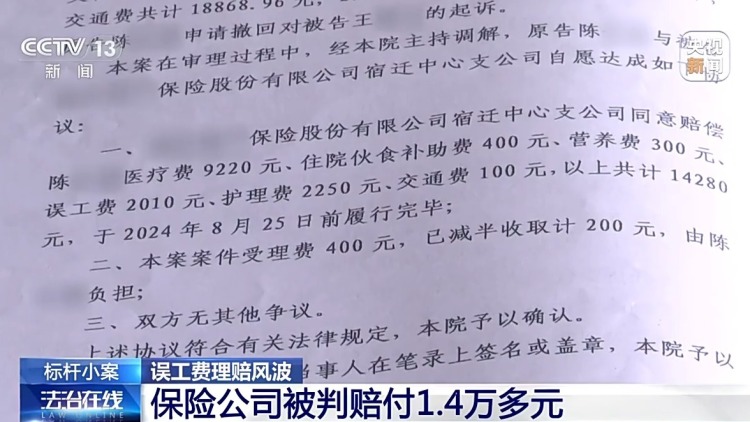 交通费共计 18868.96 元,
CCTV 13
新闻
央视
新闻
告陈 申请撤回对被告王 的起诉。
本案在审理过程中，经本院主持调解，原告陈 与被
保险股份有限公司宿迁中心支公司自愿达成如 协
议：
一、 保险股份有限公司宿迁中心支公司同意赔偿
陈 医疗费 9220 元、住院伙食补助费 400 元、营养费 300 元、
误工费 2010 元、护理费 2250 元、交通费 100 元，以上共计 14280
元，于 2024 年 8 月 25 日前履行完毕；
二、本案案件受理费 400 元，已减半收取计 200 元，由陈
负担；
三、双方无其他争议。
上述协议符合有关法律规定，本院予以确认。
当事人在笔录上签名或盖章，本院予以
标杆小案
误工费理赔风波
法治在线
LAW ONLINE
保险公司被判赔付1.4万多元